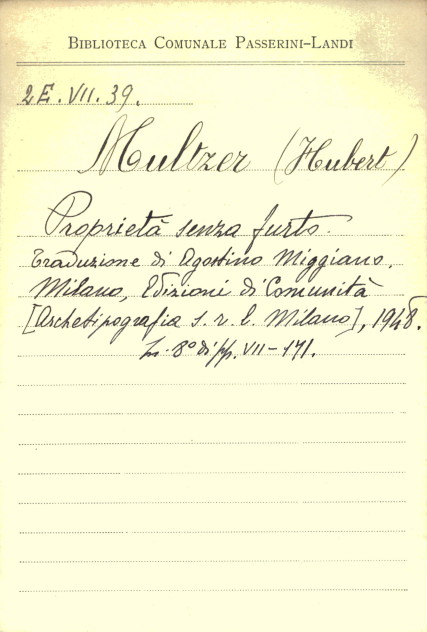 BIBLIOTECA COMUNALE PASSERINI-LANDI
2E. VII. 39.
Multzer (Hubert)
Proprietà senza furto.
Traduzione di Agostino Miggiano.
Milano, Edizioni di Comunità
[Archetipografia s. r. l. Milano], 1948.
In-8° di pp. VII-171.